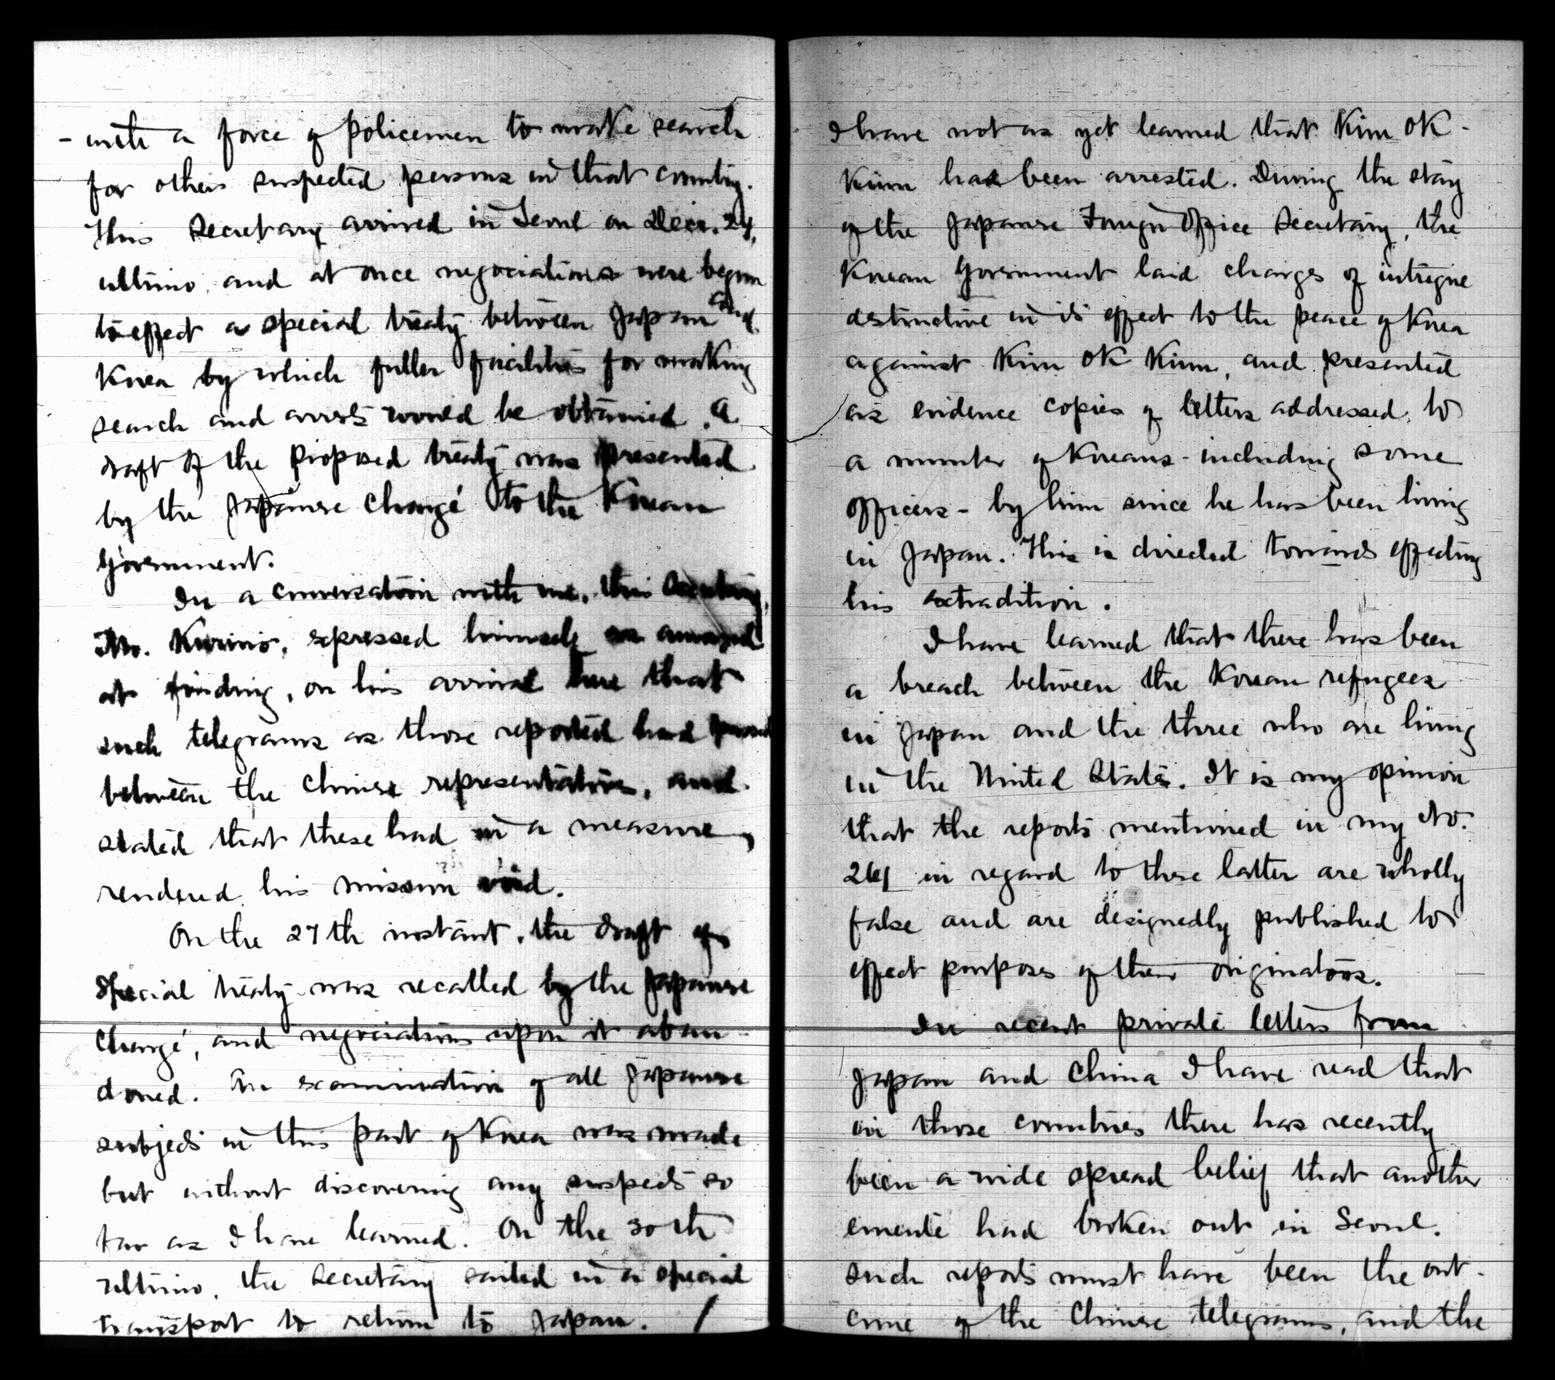 - with a force of policemen to make search
for others suspected persons in that country.
This Secretary arrived in Seoul on Decr. 24,
ultimo, and at once negociations were begun
to effect a special treaty between Japan and
Korea by which fuller facilities for making
search and arrests would be obtained. A
draft of the proposed treaty was presented
by the Japanese Chargé to the Korean
Government.
In a conversation with me, this Secretary,
Mr. Kurino, expressed himself as amazed
at finding, on his arrival here that
such telegrams as those reported had passed
between the Chinese representatives, and
stated that these had in a measure,
rendered his mission void.
On the 27th instant, the draft of
special treaty was recalled by the Japanese
Chargé, and negociations upon it aban-
doned. An examination of all Japanese
subjects in this part of Korea was made
but without discovering any suspects so
far as I have learned. On the 30th
ultimo, the Secretary sailed in a special
transport to return to Japan.
I have not as yet learned that Kim OK-
Kiun has been arrested. During the stay
of the Japanese Foreign Office Secretary, the
Korean Government laid charges of intrigue
destructive in its effect to the peace of Korea
against Kim OK Kiun, and presented
as evidence copies of letters addressed to
a number of Koreans - including some
officers - by him since he has been living
in Japan. This is directed towards effecting
his extradition.
I have learned that there has been
a breach between the Korean refugees
in Japan and the three who are living
in the United States. It is my opinion
that the reports mentioned in my No.
261 in regard to these latter are wholly
false and are designedly published to
effect purposes of their originators.
In recent private letters from
Japan and China I have read that
in those countries there has recently
been a wide spread belief that another
emeute had broken out in Seoul.
Such reports must have been the out-
come of the Chinese telegrams, and the